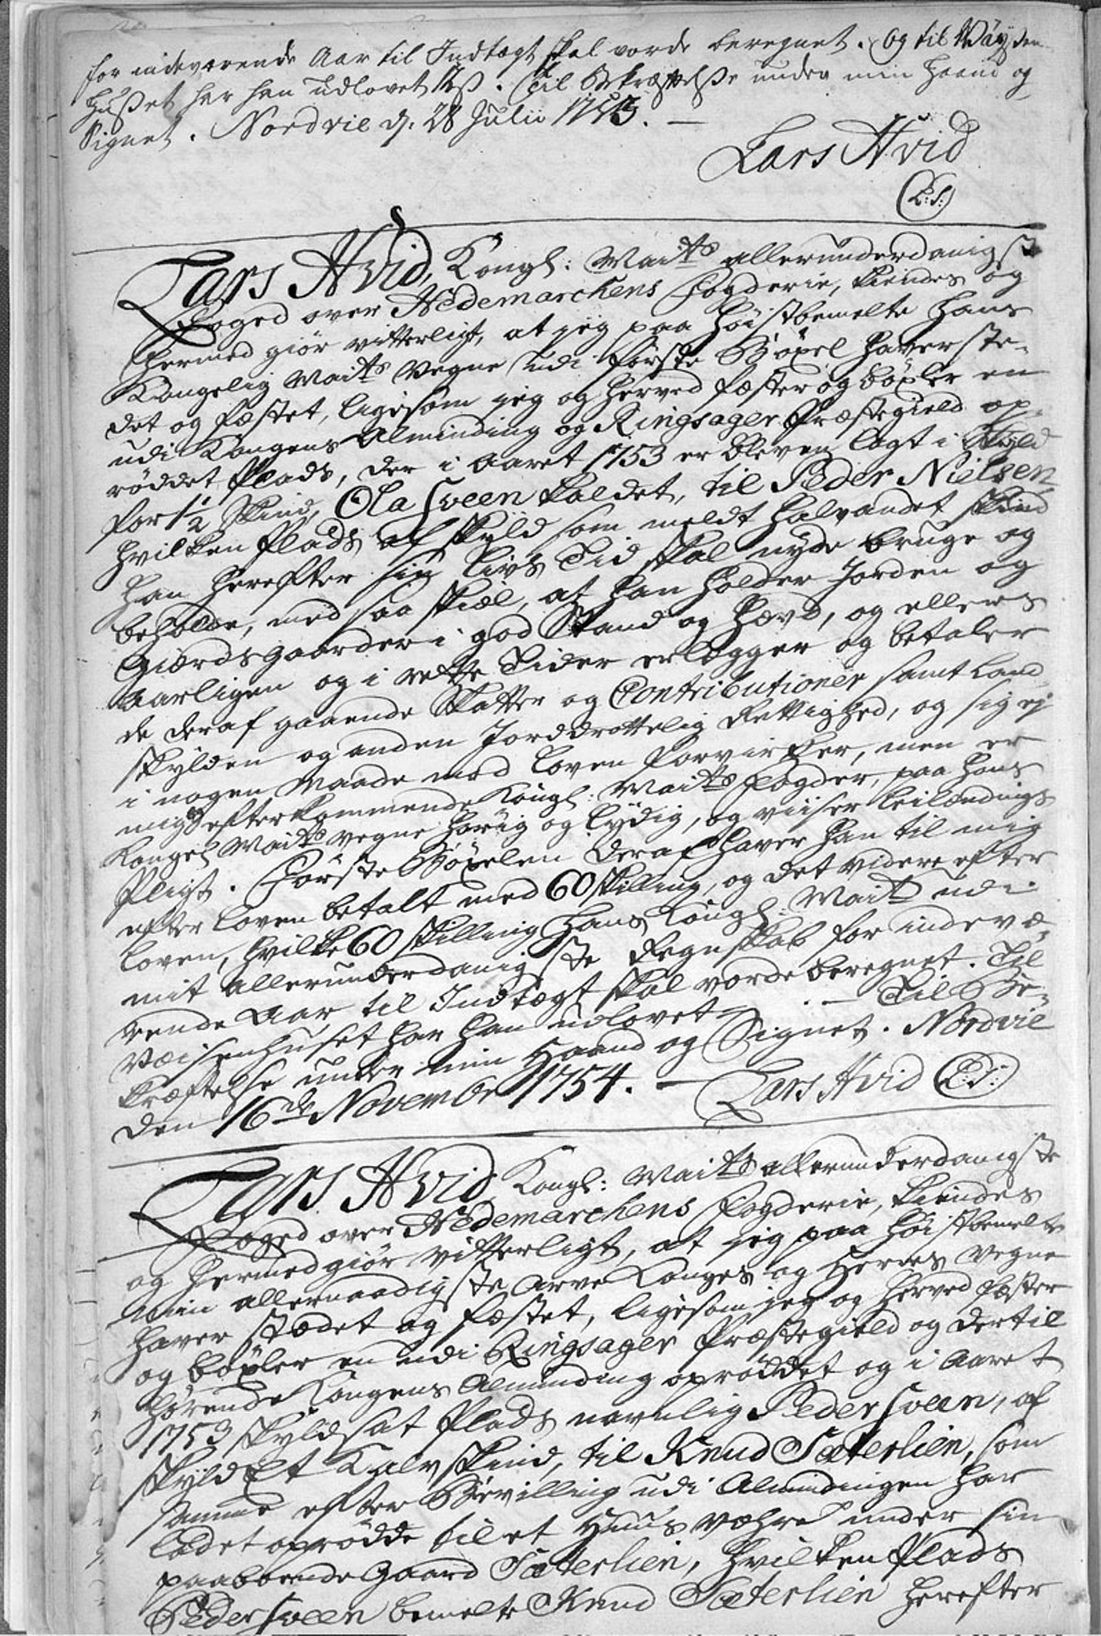 for indeværende Aar til Indtægt skal vorde beregnet. Og til Wäÿsen-
Huset har han udlovet 12ß. Til Bekræftelse under min Haand og
Signet. Nordvie d: 28 Julii
Lars Hvid
(L:S:)
Lars Hvid, Kongl: Maits allerunderdanigst
Foged over Hedemarchens Fogderie, Kiendes og
hermed giør vitterligt, at jeg paa Høistbemelte Hans
Kongelig Maits Vegne udi første Böxel haver ste-
det og fæstet, ligesom jeg og herved fæster og böxler en
udi Kongens Alminding og Ringsager Præstegield op-
röddet Plads, der i Aaret 1753 er bleven lagt i Skyld
for 1½ Skind, Ola Sveen kaldet, til Peder Nielsen,
hvilken Plads af Skyld som meldt halvandet Skind
han herefter sin Livs Tid skal nyde bruge og
beholde, med saa skiæl, at han holder Jorden og
Giærdsgaarder i god Stand og Hævd, og ellers
aarligen og i rette Tider erlægger og betaler
de deraf gaaende Skatter og Contributioner samt Land-
skylden og anden Jorddrottelig Rettighed, og sig ej
i nogen Maade mod Loven forvirker, men er
mig og efterkommende Kongl: Maits Fogder, paa Hans
Kongel Maits Vegne hörig og lydig, og viiser Leilændings
Pligt. Förste Böxelen deraf haver han til mig
efter Loven betalt med 60 skilling, og det videre efter
Loven, hvilke 60 skilling Hans Kongl: Mait udi
mit allerunderdanigste Regnskab for indevæ-
rende Aar til Indtægt skal vorde beregnet. Til
Væisenhuset har han udlovet - . - Til Be-
kræftelse under min Haand og Signet. Nordvie
den 16de Novembr 1754. — Lars Hvid (L:S:)
Lars Hvid, Kongl: Maits allerunderdanigste
Foged over Hedemarchens Fogderie, Kiendes
og hermed giør vitterligt, at jeg paa Høistbemelte
min allernaadigste Arve Konges og Herres Vegne
haver stædet og fæstet, ligesom jeg og herved fæster
og böxler en udi Ringsager Præstegield og dertil
hörende Kongens Alminding oprøddet og i Aaret
1753 skyldsat Plads navnlig Peder Sveen, af
skyld Et Kalvskind, til Knud Sæterlien, som
samme efter Bevilling udi Almindingen har
ladet oprödde til et Huus være under sin
paaboende Gaard Sæterlien, hvilken Plads
Peder Sveen bemelte Knud Sæterlien herefter